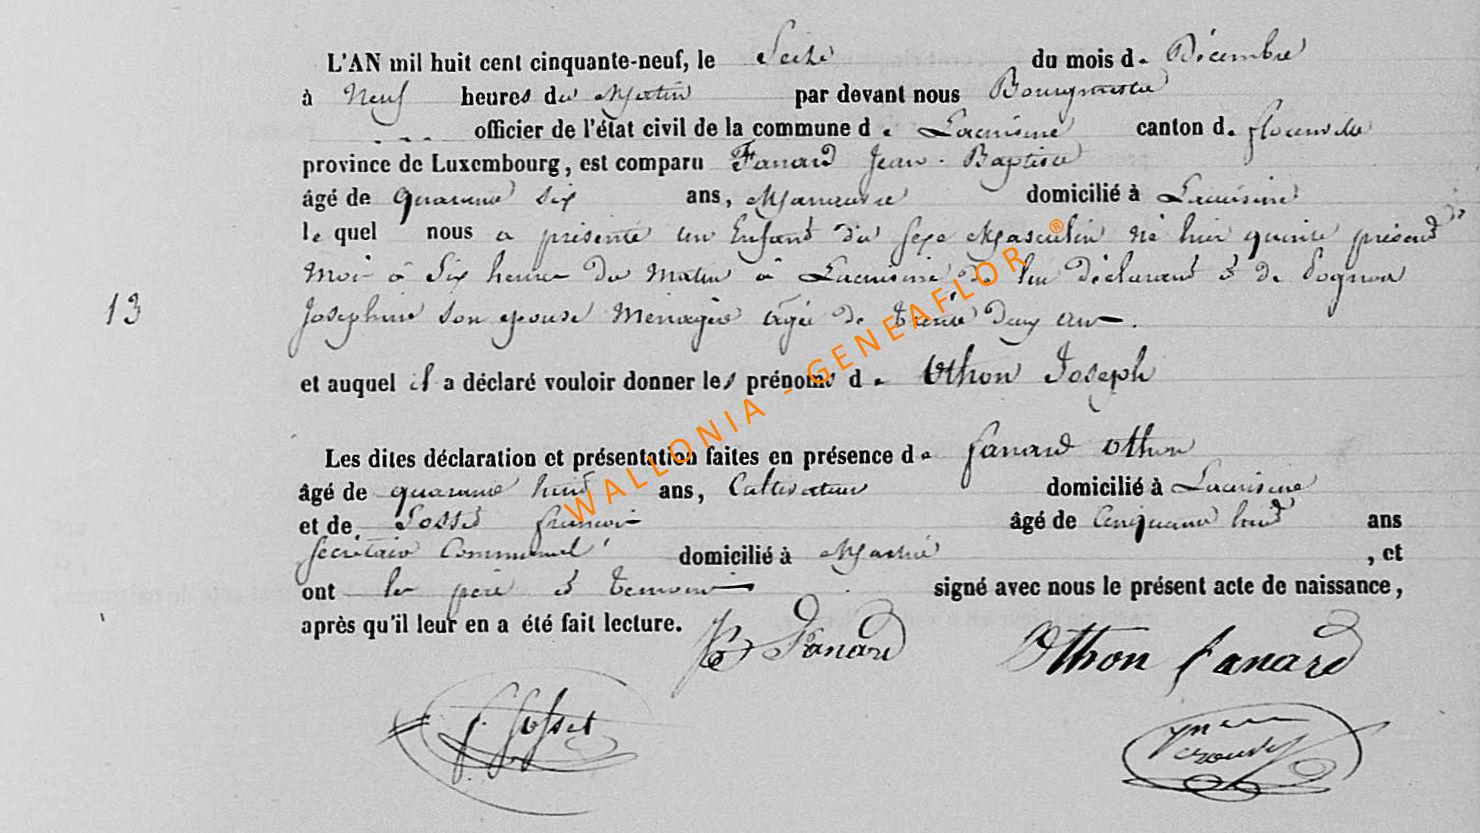 L'AN mil huit cent cinquante-neuf, le Seize du mois de Décembre
à Neuf heures du Matin par devant nous Bourgmestre
officier de l'état civil de la commune de Lacuisine canton de florenville
province de Luxembourg, est comparu Fanard Jean-Baptiste
âgé de quarante six ans, Manœuvre domicilié à Lacuisine
lequel nous a présenté un Enfant du sexe Masculin né hier quinze présent
Mois à Six heures du Matin à Lacuisine, de lui déclarant & de
13
Joséphine son épouse Ménagère âgée de trente deux ans.
et auquel il a déclaré vouloir donner les prénoms de Othon Joseph
Les dites déclaration et présentation faites en présence de fanard Othon
âgé de quarante huit ans, Cultivateur domicilié à Lacuisine
et de françois âgé de Cinquante huit ans
Secrétaire Communal domicilié à , et
ont les père & témoins signé avec nous le présent acte de naissance,
après qu'il leur en a été fait lecture.
Fanard Othon fanard
WALLONIA - GENEAFLOR ®